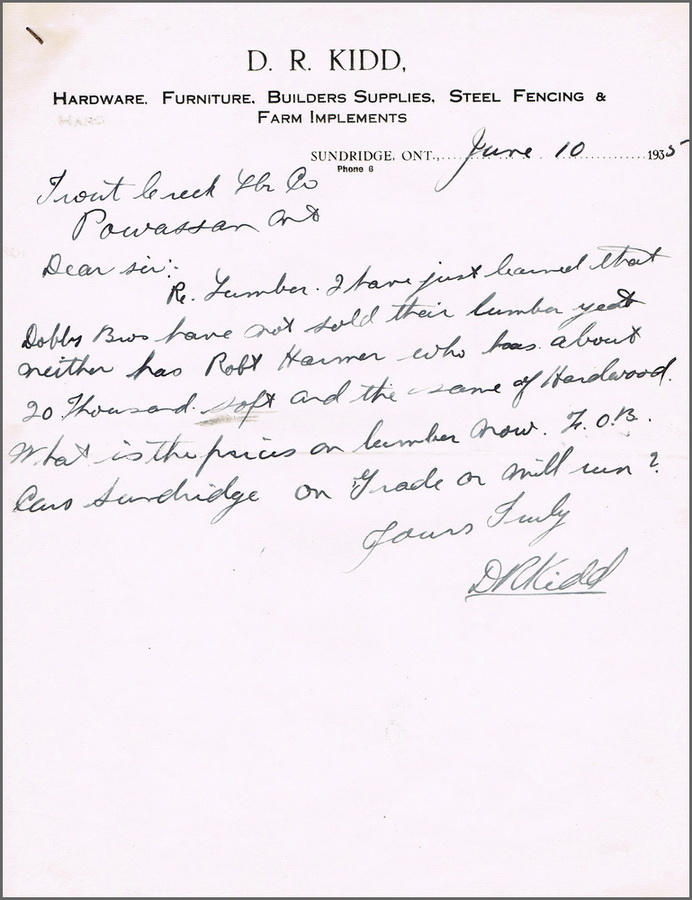 D. R. KIDD,
HARDWARE. FURNITURE. BUILDERS SUPPLIES, STEEL FENCING &
FARM IMPLEMENTS
SUNDRIDGE, ONT., June 10 1935
Phone 6
Trout Creek Lbr Co
Powassan Ont
Dear sir:
Re. Lumber. I have just learned that
Dobbs Bros have not sold their lumber yeat
neither has Robt Harmer who has about
20 Thousand soft and the same of Hardwood.
What is the prices on lumber now. F.O.B.
Cars Sundridge on Grade or mill run?
Yours Truly
DRKidd